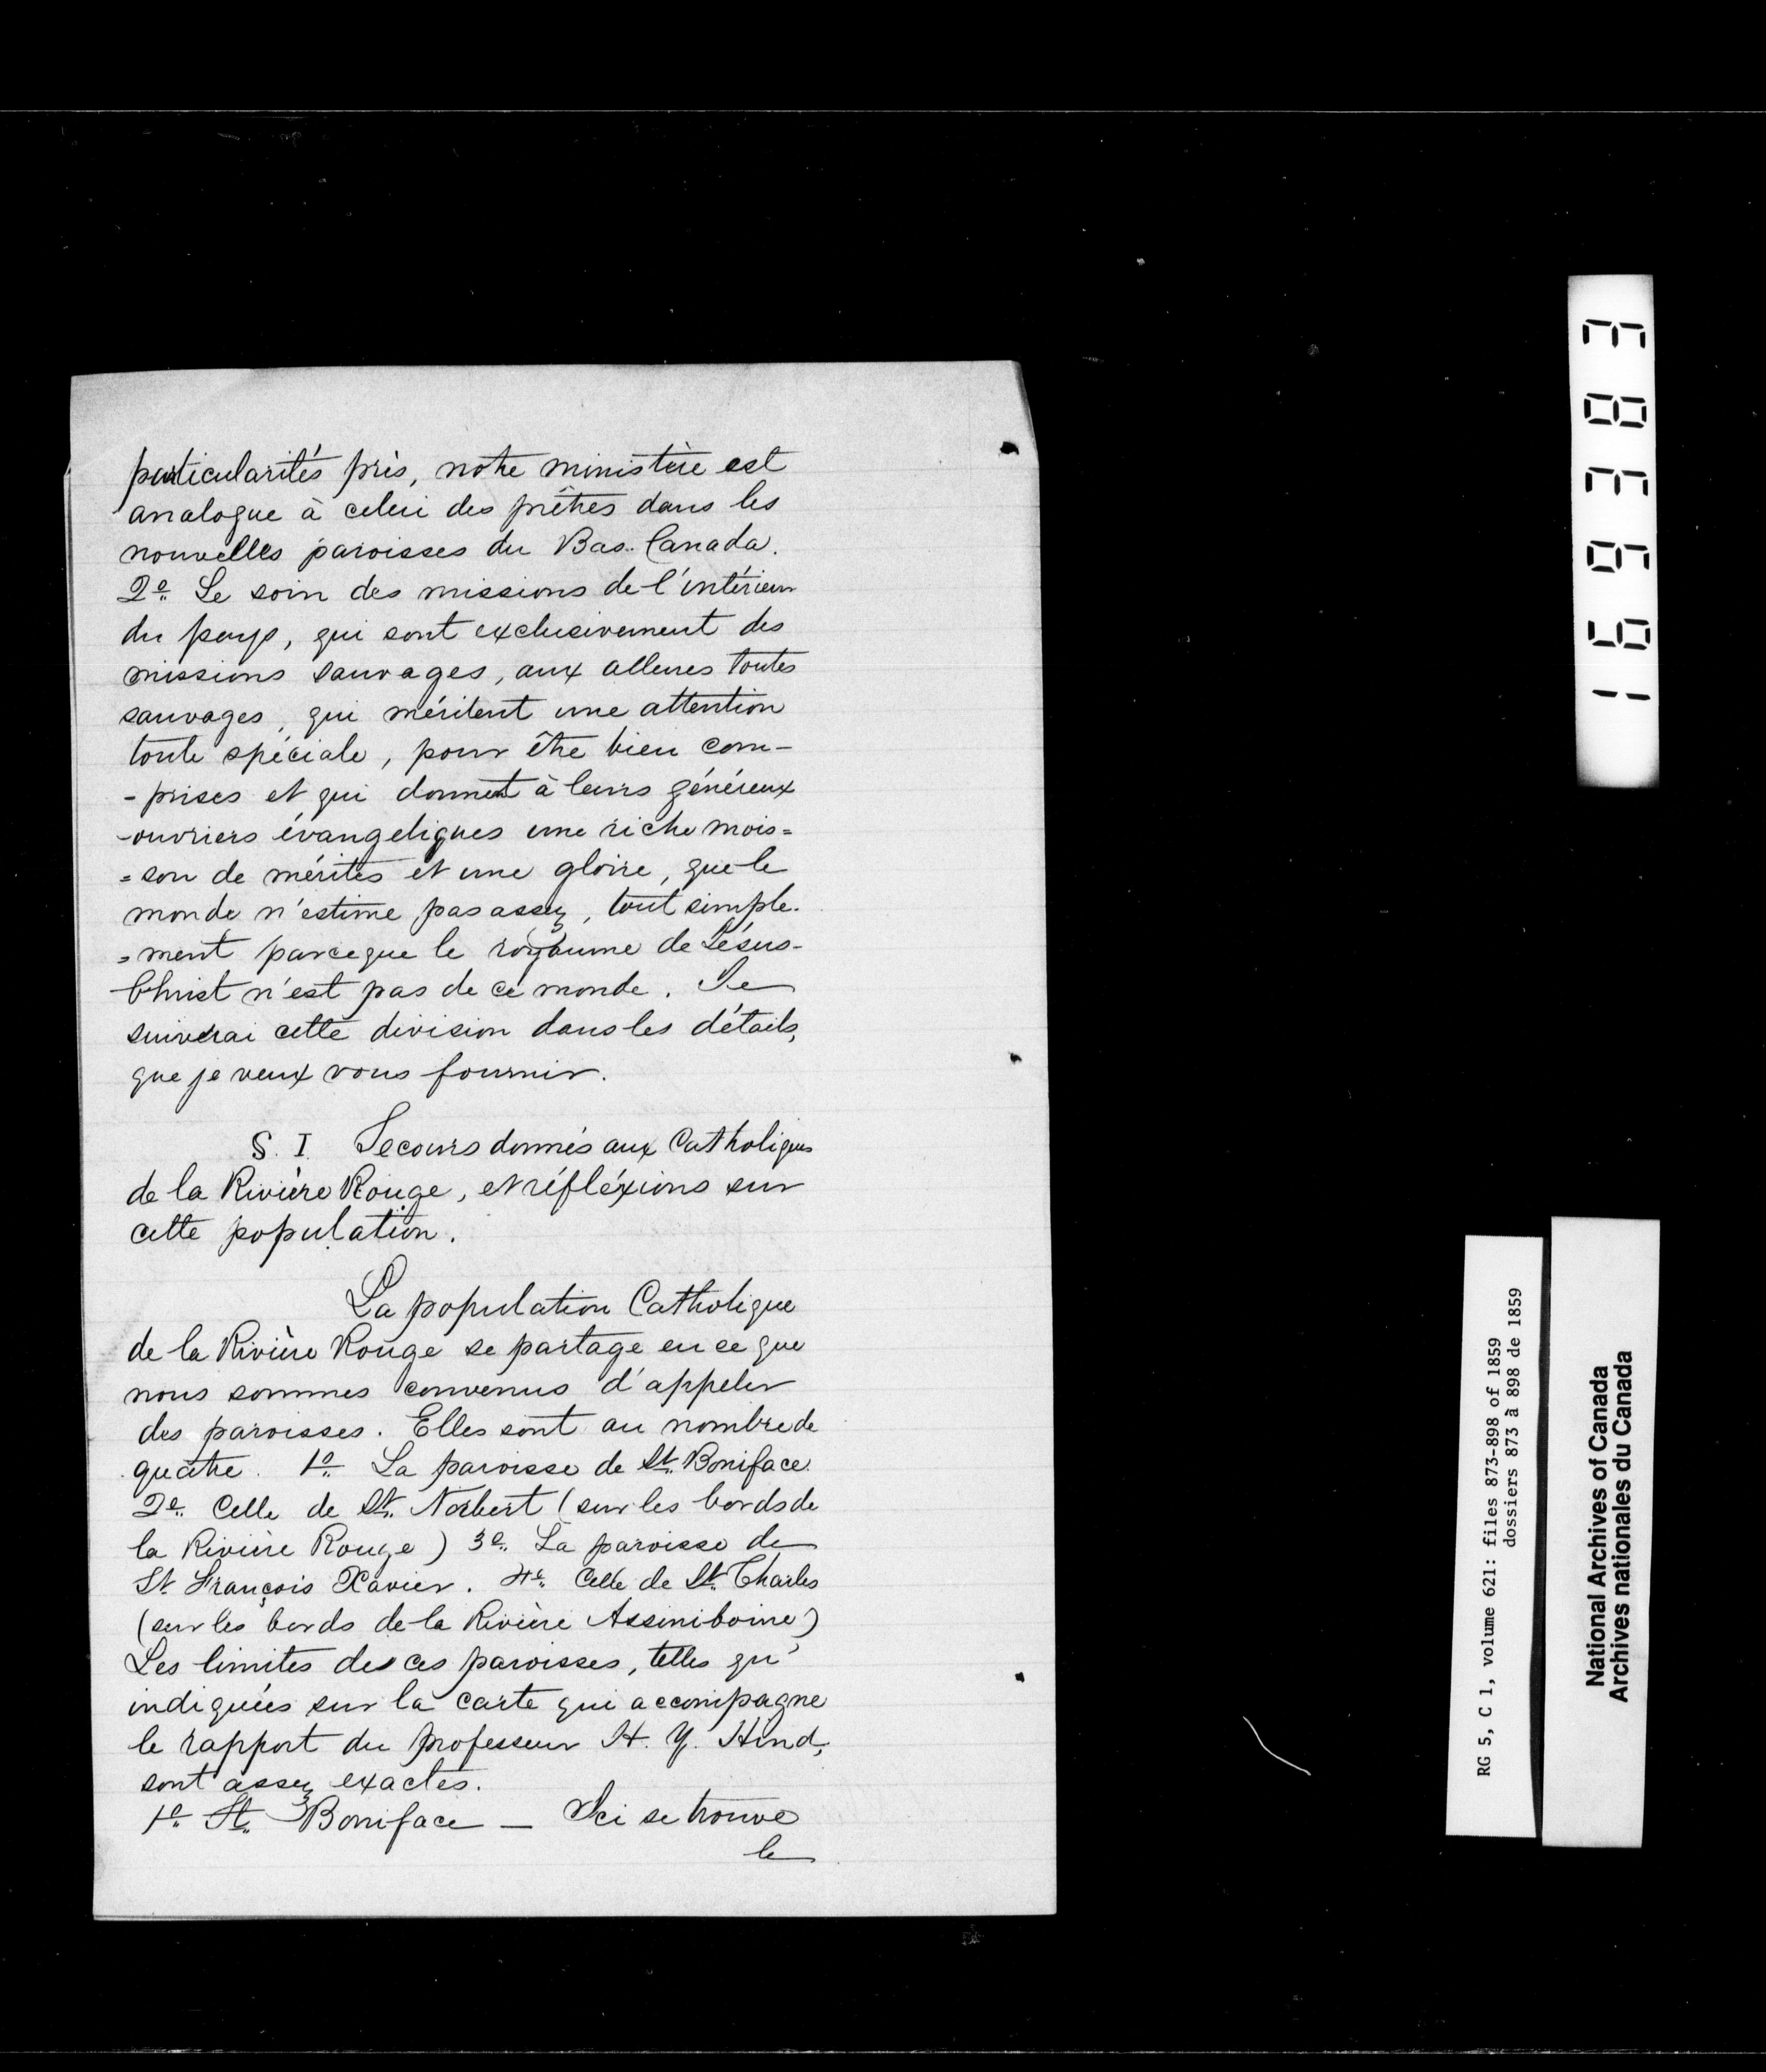 particularités près, notre ministère est
analogue à celui des prêtres dans les
nouvelles paroisses du Bas-Canada.
2º. Le soin des missions de l'intérieur
du pays, qui sont exclusivement des
missions sauvages, aux allures toutes
sauvages, qui méritent une attention
toute spéciale, pour être bien com-
-prises et qui donnent à leurs généreux
-ouvriers évangeliques une riche mois=
=son de mérites et une gloire, que le
monde n'estime pas assez, tout simple-
=ment parceque le royaume de Jésus-
Christ n'est pas de ce monde. Je
suiverai cette division dans les détails,
que je veux vous fournir.
S. I. Secours donnés aux Catholiques
de la Rivière Rouge, et réfléxions sur
cette population.
La population Catholique
de la Rivière Rouge se partage en ce que
nous sommes convenus d'appeler
des paroisses. Elles sont au nombre de
quatre. 1º. La paroisse de St. Boniface.
2º. Celle de St. Norbert (sur les bords de
la Rivière Rouge) 3º. La paroisse de
St François Xavier. 4º. Celle de St. Charles
(sur les bords de la Rivière Assiniboine)
Les limites de ces paroisses, telles qu'
indiquées sur la carte qui accompagne
le rapport du professeur H. Y. Hind,
sont assez exactes.
1º. St. Boniface — Ici se trouve
le
19383
RG 5, C 1, volume 621: files 873-898 of 1859
dossiers 873 à 898 de 1859
National Archives of Canada
Archives nationales du Canada